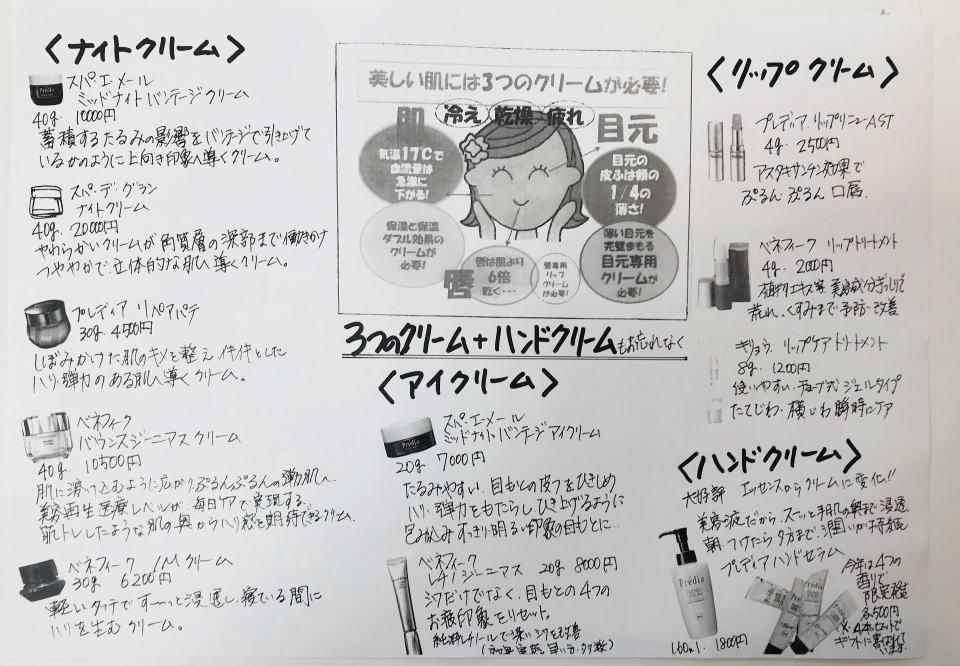 〈ナイトクリーム〉
スパ・エ・メール
ミッドナイトバンテージクリーム
40g 10000円
蓄積するたるみの影響をバンテージで引き上げて
いるかのように上向き印象へ導くクリーム。
スパ・デ・グラン
ナイトクリーム
40g 20000円
やわらかいクリームが角質層の深部まで働きかけ
つややかで、立体的な肌へ導くクリーム。
プレディア リペアパテ
30g 4500円
しぼみかけた肌のキメを整え
ハリ・弾力のある肌へ導くクリーム。
ベネフィーク
バウンスジーニアスクリーム
40g 10500円
肌に溶け込むように広がりぷるんぷるんの弾力肌へ
美容再生医療レベルが、毎日ケアで実現する。
筋トレしたような肌の奥からハリ感を期待できるクリーム。
ベネフィーク NMクリーム
30g 6200円
軽いタッチで、すーっと浸透し、寝ている間に
ハリを生むクリーム。
美しい肌には3つのクリームが必要!
肌
冷え 乾燥 疲れ
目元
気温17℃で
血流量は
急激に
下がる!
目元の
皮ふは頬の
1/4の
薄さ!
保湿と保温
ダブル効果の
クリームが
必要!
薄い目元を
完璧まもる
目元専用
クリームが
必要!
唇
唇は肌より
6倍
乾く…
唇専用
リップ
クリーム
が必要!
3つのクリーム+ハンドクリームもお忘れなく
〈アイクリーム〉
スパ・エ・メール
ミッドナイトバンテージアイクリーム
Prédia
20g 7000円
たるみやすい、目もとの皮フをひきしめ
ハリ・弾力をもたらし、ひき上げるように
包み込みすっきり明るい印象の目もとに…
ベネフィーク
レチノジーニアス 20g 8000円
シワだけでなく、目もとの4つの
お疲れ印象をリセット。
純粋レチノールで深いシワを改善
〈リップクリーム〉
プレディア リップリニューAST
4g 2500円
アスタキサンチン効果で
ぷるん・ぷるん 口唇
ベネフィーク リップトリートメント
4g 2000円
植物エキス等 美容成分ぎっしりで
荒れ、くすみまで予防・改善
キリョウ リップケアトリートメント
8g 1200円
使いやすい・チューブ式 ジェルタイプ
たてじわ・横じわ 瞬時にケア
〈ハンドクリーム〉
大好評 エッセンスからクリームに変化!!
美容液だから、スーッと手肌の奥まで浸透
朝、つけたら夕方まで、潤いが持続
プレディアハンドセラム
Prédia
160ml 1800円
今年は4つの
香りで
限定発売
各500円
※4本セットで